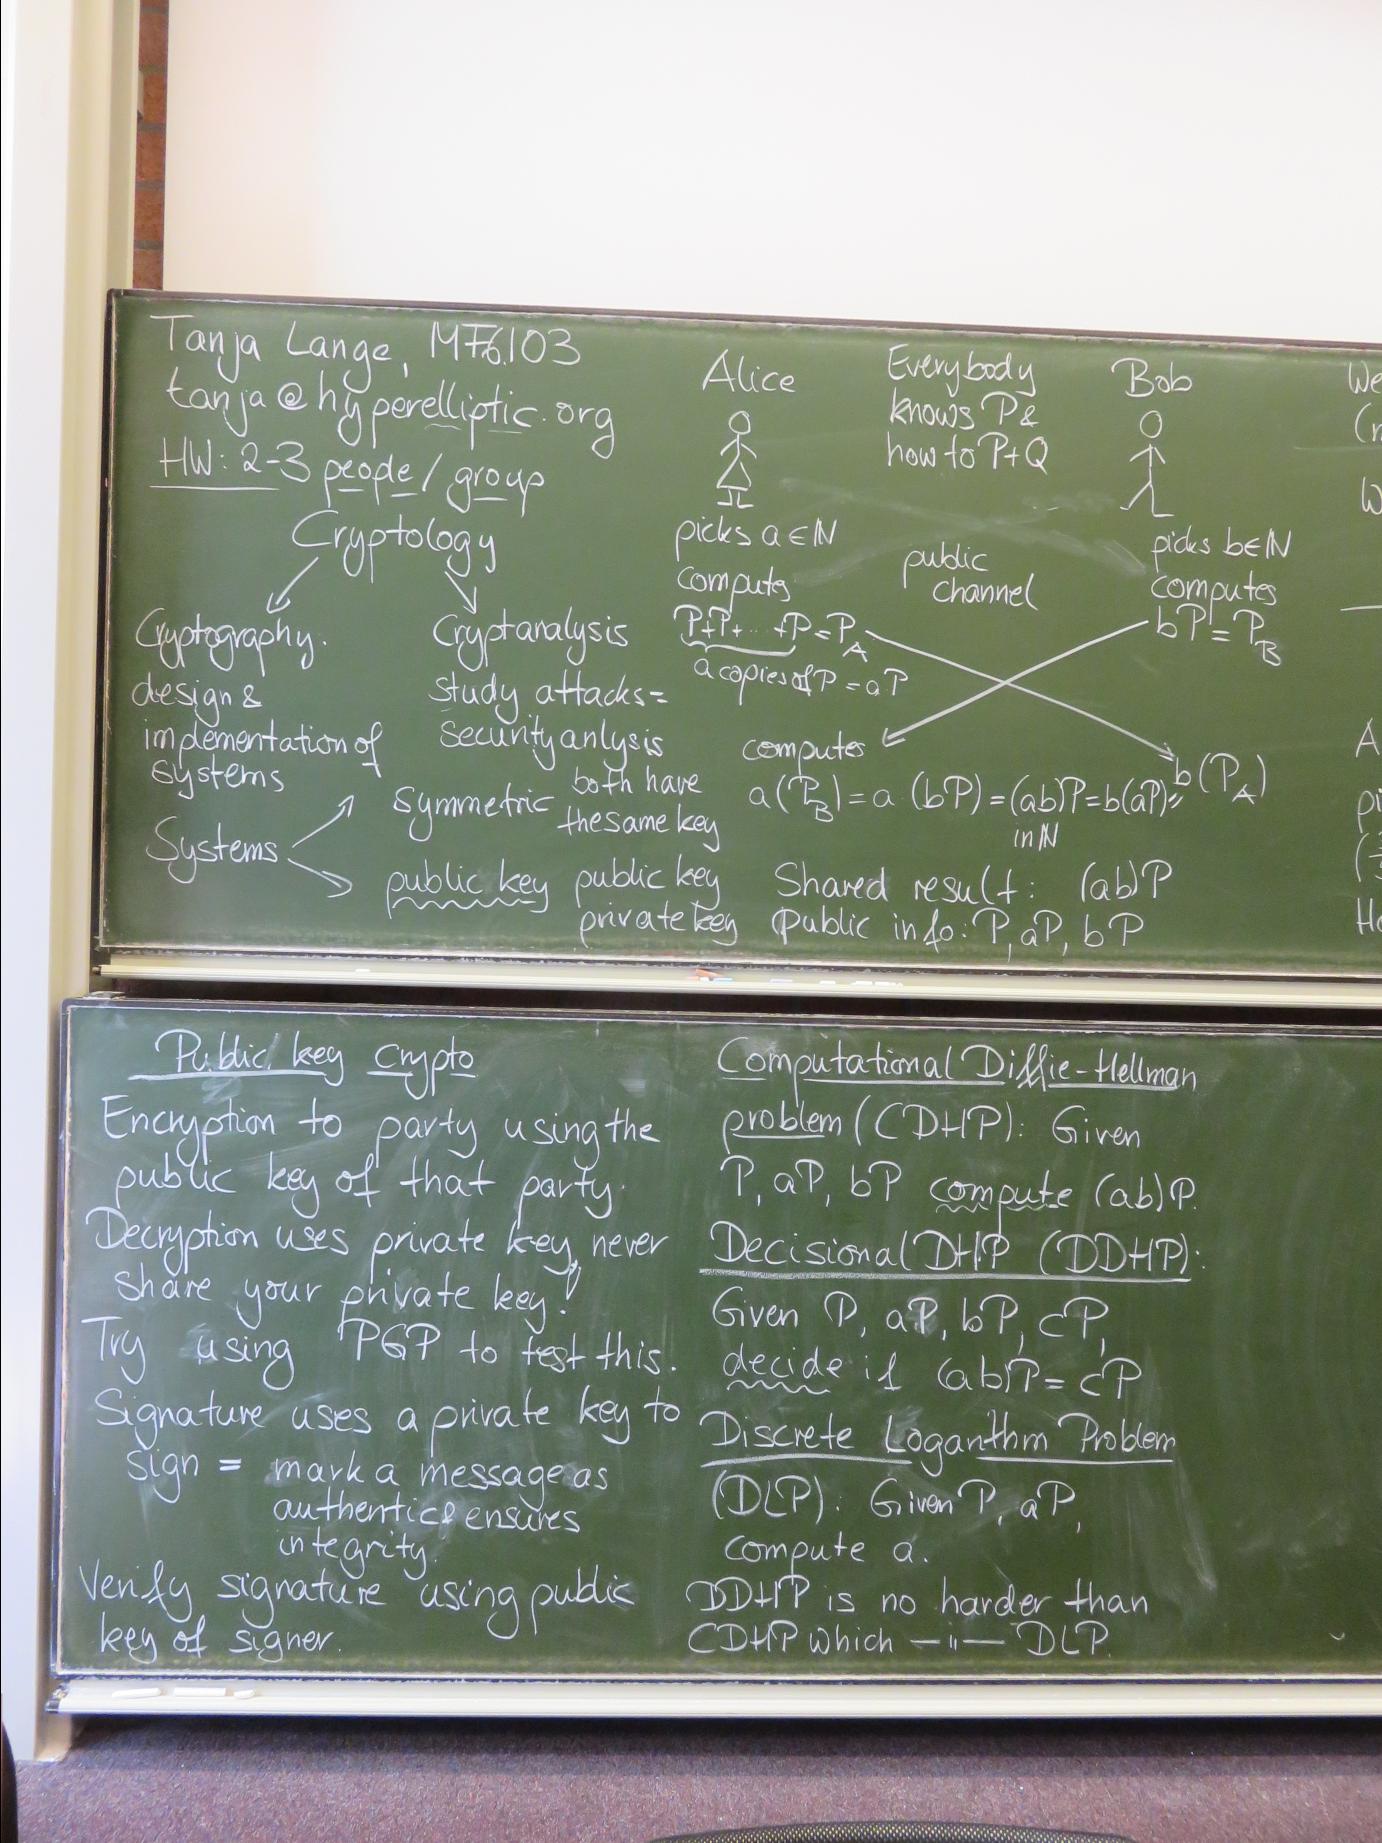 Tanja Lange, MF6.103
tanja@hyperelliptic.org
HW: 2-3 people / group
Cryptology
Cryptography:
design &
implementation of
systems
Cryptanalysis
study attacks =
security anlysis
Systems
symmetric both have
the same key
public key public key
private key
Alice
Everybody
knows P &
how to P+Q
Bob
picks a ∈ ℕ
computes
P+P+...+P = P_A
a copies of P = aP
public
channel
picks b ∈ ℕ
computes
bP = P_B
computes
a(P_B) = a (bP) = (ab)P = b(aP) = b(P_A)
in ℕ
Shared result: (ab)P
public info: P, aP, bP
We
W
A
pi
Public key crypto
Encryption to party using the
public key of that party.
Decryption uses private key, never
share your private key!
Try using PGP to test this.
Signature uses a private key to
sign = mark a message as
authentic & ensures
integrity.
Verify signature using public
key of signer.
Computational Diffie-Hellman
problem (CDHP): Given
P, aP, bP compute (ab)P.
Decisional DHP (DDHP):
Given P, aP, bP, cP,
decide if (ab)P = cP
Discrete Logarithm Problem
(DLP): Given P, aP,
compute a.
DDHP is no harder than
CDHP which —"— DLP.